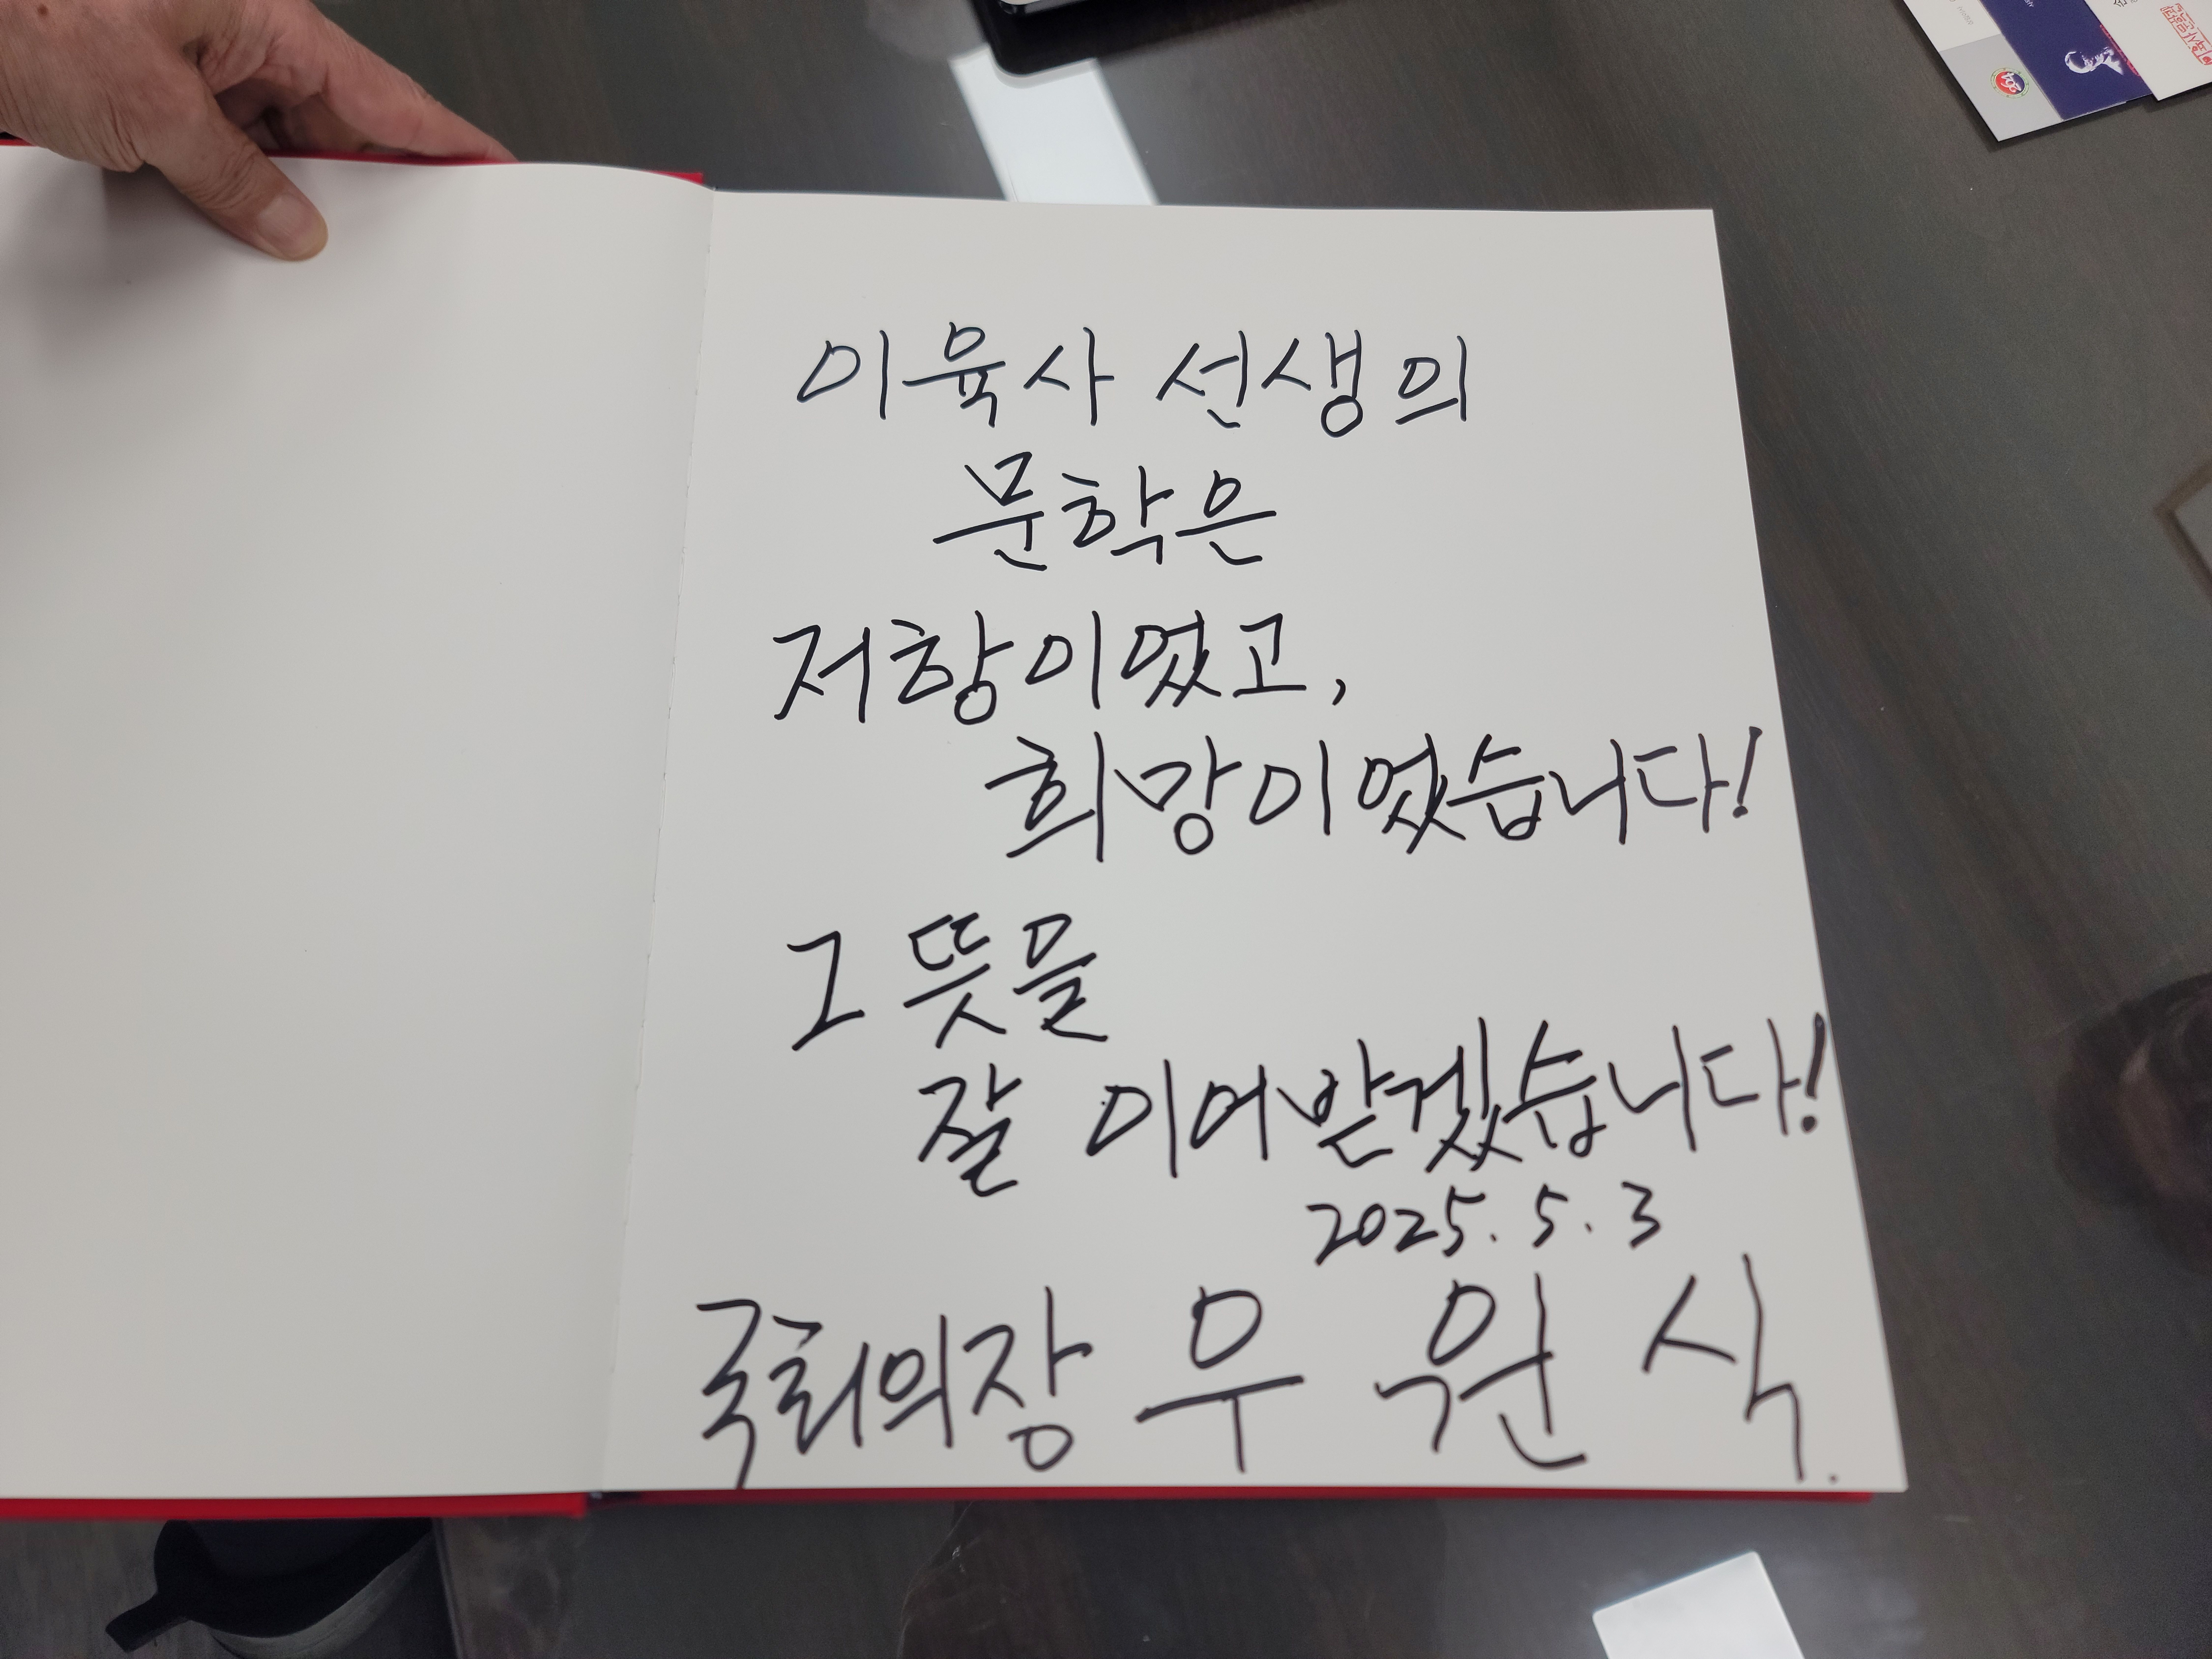 이육사 선생의
문학은
저항이었고,
희망이었습니다!
그 뜻을
잘 이어받겠습니다!
2025. 5. 3
국회의장 우 원 식.